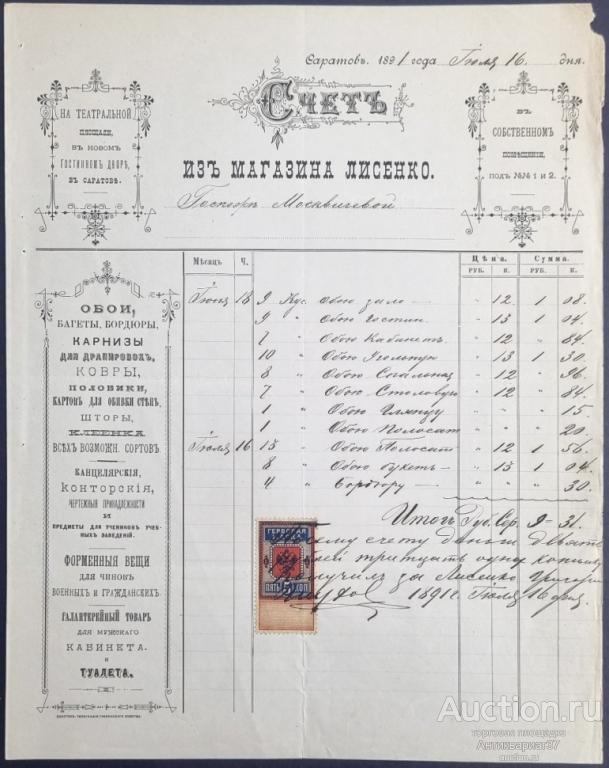 Саратовъ. 1891 года Іюля 16 дня.
НА ТЕАТРАЛЬНОЙ
ПЛОЩАДИ,
ВЪ НОВОМЪ
ГОСТИННОМЪ ДВОРѢ,
ВЪ САРАТОВѢ.
СЧЕТЪ
ИЗЪ МАГАЗИНА ЛИСЕНКО.
ВЪ
СОБСТВЕННОМЪ
ПОМѢЩЕНІИ,
ПОДЪ №№ 1 и 2.
Москвичевой
Мѣсяцъ Ч. Цѣна. Сумма.
РУБ. К. РУБ. К.
ОБОИ,
БАГЕТЫ, БОРДЮРЫ,
КАРНИЗЫ
ДЛЯ ДРАПИРОВОКЪ,
КОВРЫ,
ПОЛОВИКИ,
КАРТОНЪ ДЛЯ ОБИВКИ СТѢНЪ,
ШТОРЫ,
КЛЕЕНКА
ВСѢХЪ ВОЗМОЖН. СОРТОВЪ.
КАНЦЕЛЯРСКІЯ,
КОНТОРСКІЯ,
ЧЕРТЕЖНЫЯ ПРИНАДЛЕЖНОСТИ
И
ПРЕДМЕТЫ ДЛЯ УЧЕНИКОВЪ УЧЕБ-
НЫХЪ ЗАВЕДЕНІЙ.
ФОРМЕННЫЯ ВЕЩИ
ДЛЯ ЧИНОВЪ
ВОЕННЫХЪ И ГРАЖДАНСКИХЪ.
ГАЛАНТЕРЕЙНЫЙ ТОВАРЪ
ДЛЯ МУЖСКАГО
КАБИНЕТА
и
ТУАЛЕТА.
Іюня 18 9 Кус. Обою зало — " 12 1 08.
9 " Обою Гостин " 13 1 04.
7 " Обою Кабинетъ " 12 " 84
10 " Обою " 13 1 30
8 " Обою " 12 " 96
7 " Обою Столовую " 12 " 84
1 " Обою " " " 15
1 " Обою Полосат " " " 20
Іюля 16 13 " Обою Полосат " 12 1 56.
8 " Обою букетъ " 13 1 04
4 " Бордюру " " " 30
Итого Руб. Сер. 9 = 31.
счету деньги девять
рублей тридцать одну копейку
получилъ за Лисенко
1891 г. Іюля 16 дня
ГЕРБОВАЯ
МАРКА
ПЯТЬ 5 КОП
Auction.ru
торговая площадка
Антиквариат37
auction.ru